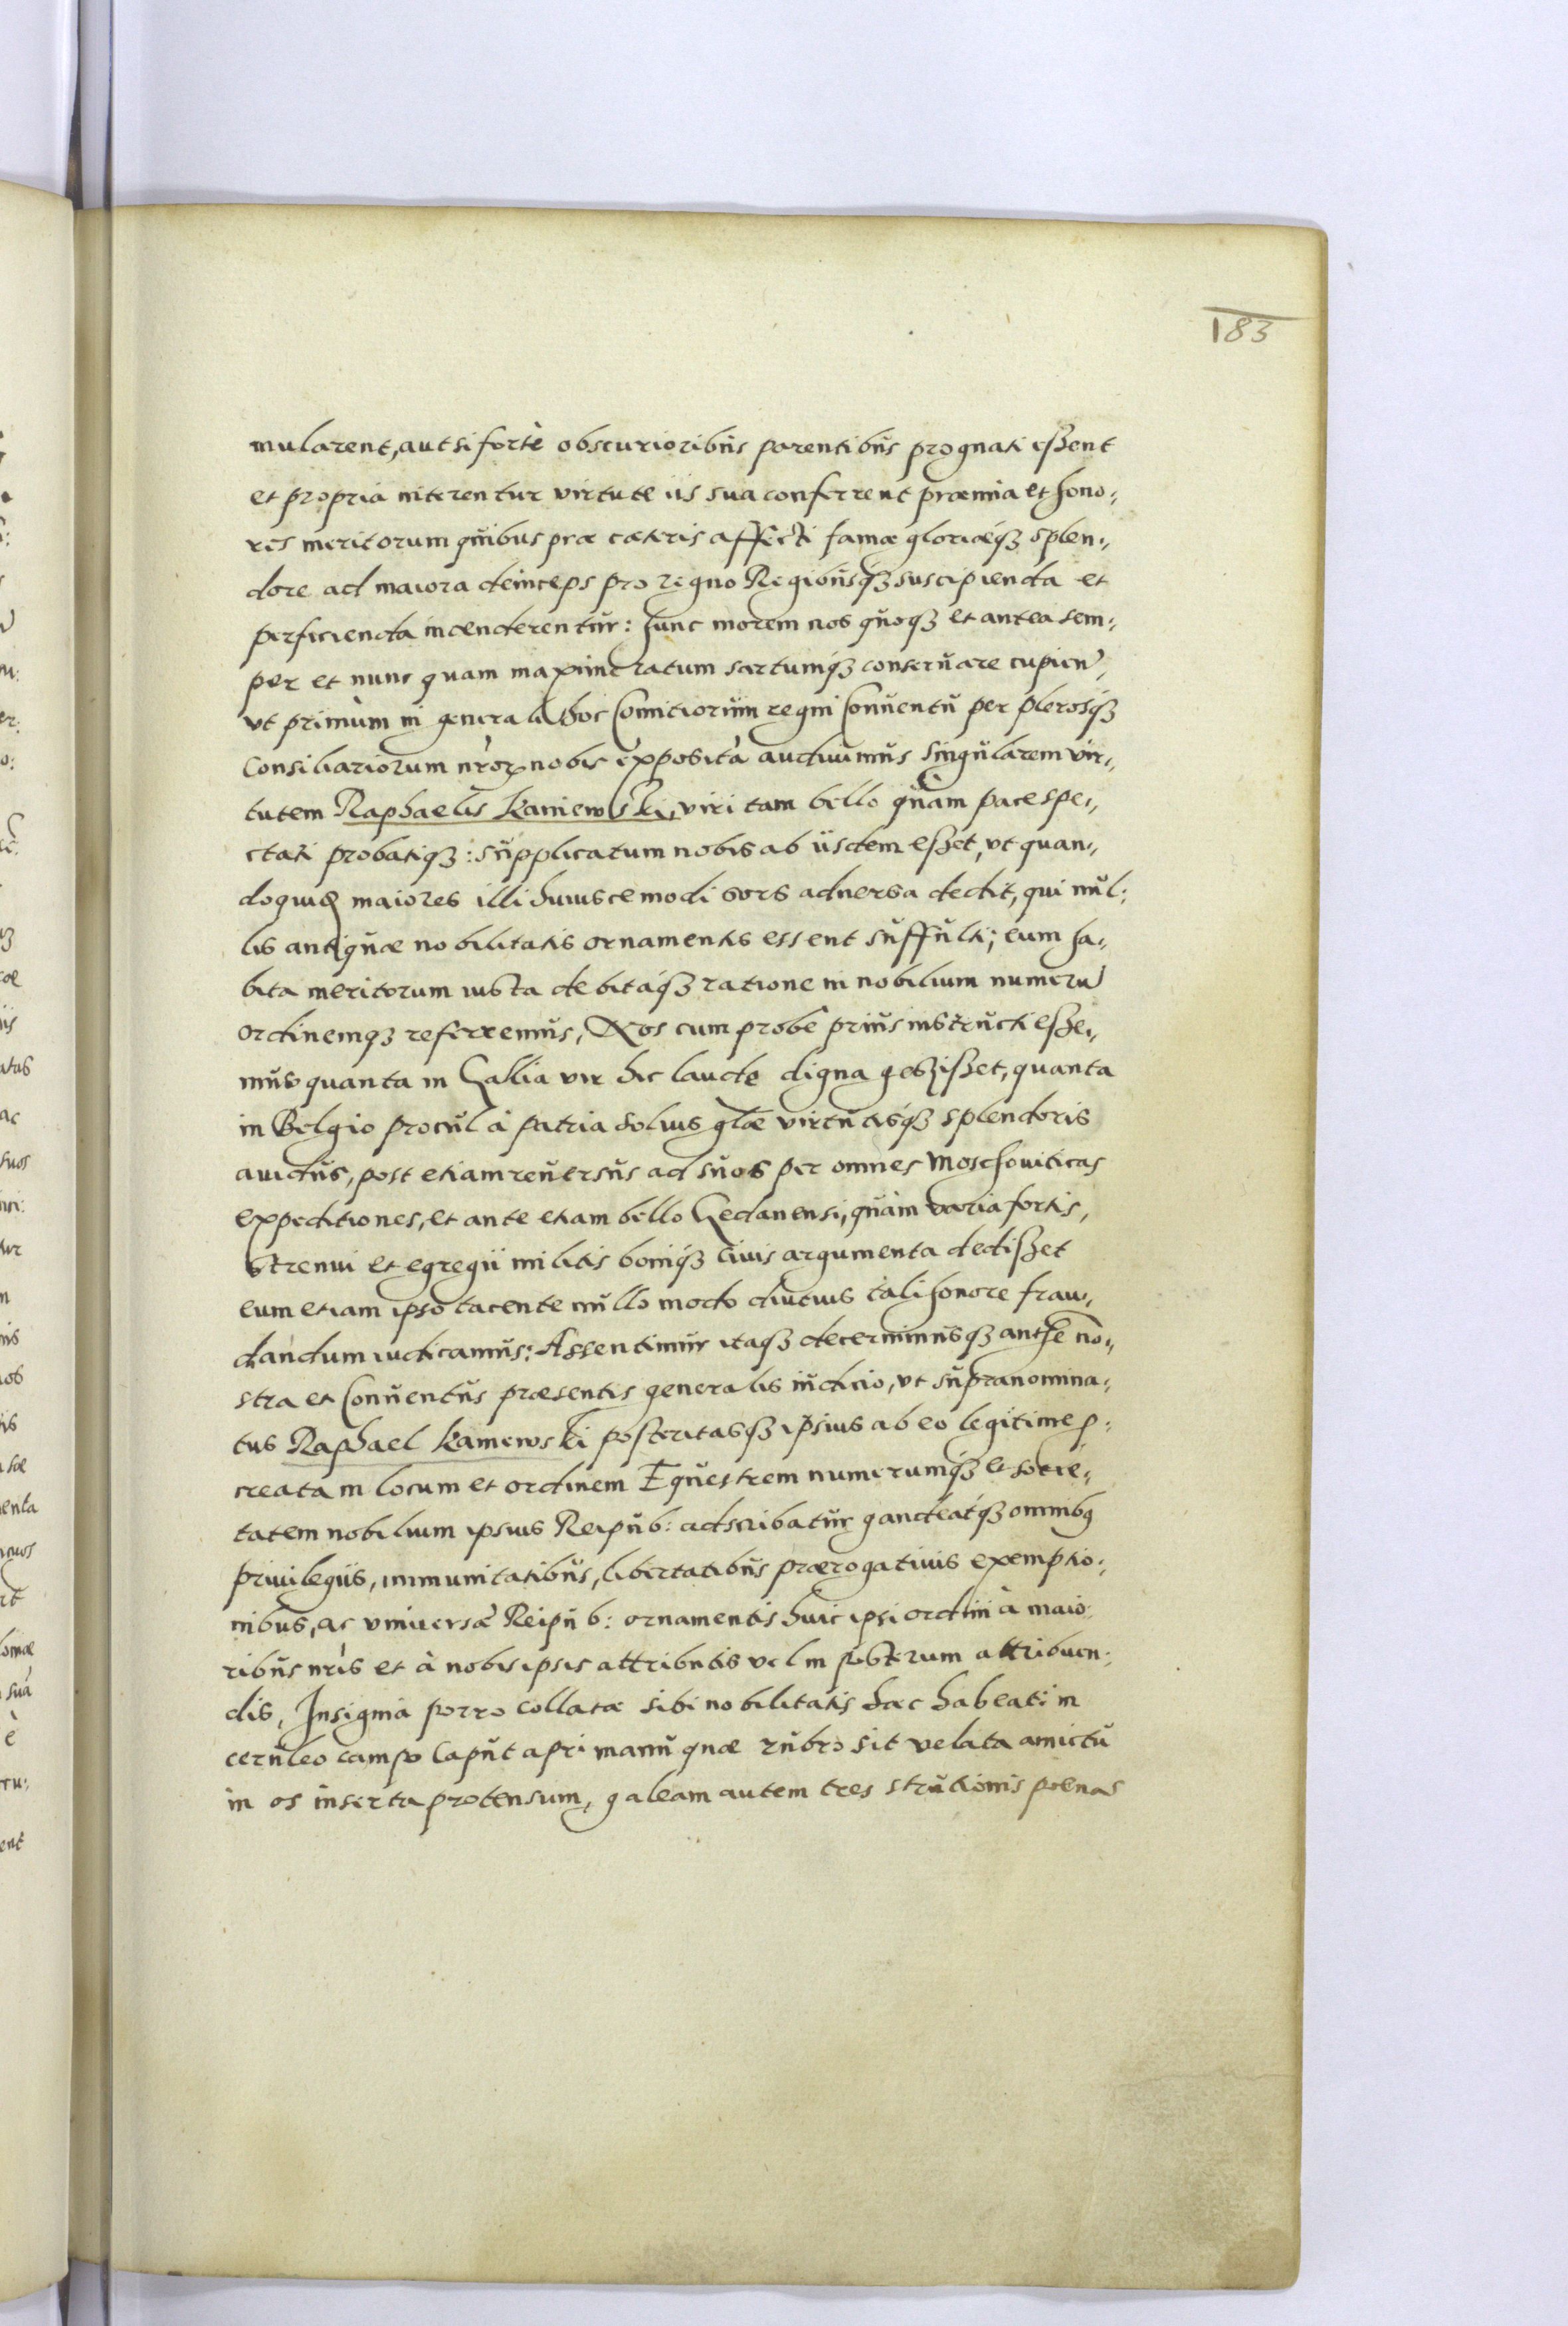 183
mularent, aut si fortè obscurioribus parentibus prognati essent
et propria niterentur virtute iis sua conferrent præmia et hono:
res meritorum quibus præ cæteris affecti famæ gloriæq3 splen:
dore ad maiora deinceps pro regno Regibusq3 suscipienda et
perficienda incenderentur: hunc morem nos quoq3 et antea sem:
per et nunc quam maxime ratum sartumq3 conseruare cupien̄,
vt primùm in generali hoc Comitiorum regni Conuentu per plerosq3
Consiliariorum nr̄or nobis exposita audiuimus singularem vir:
tutem Raphaelis Kaniewski, viri tam bello quàm pace spe:
ctati probatiq3: supplicatum nobis ab iisdem esset, vt quan:
doquid maiores illi huiuscemodi sors aduersa dedit, qui nul:
lis antiquæ nobilitatis ornamentis essent suffulti; eum ha:
bita meritorum iusta debitaq3 ratione in nobilium numerū
ordinemq3 referremus, Nos cum probe prius instructi esse:
mus quanta in Gallia vir hic laude digna gessisset, quanta
in Belgio procul à patria solius glæ virtutisq3 splendoris
auidus, post etiam reuersus ad suos per omnes Moschouiticas
expeditiones, et ante etiam bello Gedanensi, quàm varia fortis,
strenui et egregii militis boniq3 ciuis argumenta dedisset
eum etiam ipso tacente nullo modo diutius tali honore frau:
dandum iudicamus: Assentimur itaq3 decernimusq3 authē no:
stra et Conuentus præsentis generalis iudicio, vt supranomina:
tus Raphael Kaniewski posteritasq3 ipsius ab eo legitime p:
creata in locum et ordinem Equestrem numerumq3 et socie:
tatem nobilium ipsius Reipub: adscribatur gaudeatq3 omnib9
priuilegiis, immunitatibus, libertatibus prærogatiuis exemptio:
nibus, ac vniuersæ Reipub: ornamentis huic ipsi ordini à maio:
ribus nr̄is et à nobis ipsis attributis vel in posterum attribuen:
dis, Insignia porro collatæ sibi nobilitatis hæc habeat: in
ceruleo campo Caput apri manu quæ rubro sit velata amictu
in os inserta protensum, galeam autem tres strutionis poenas